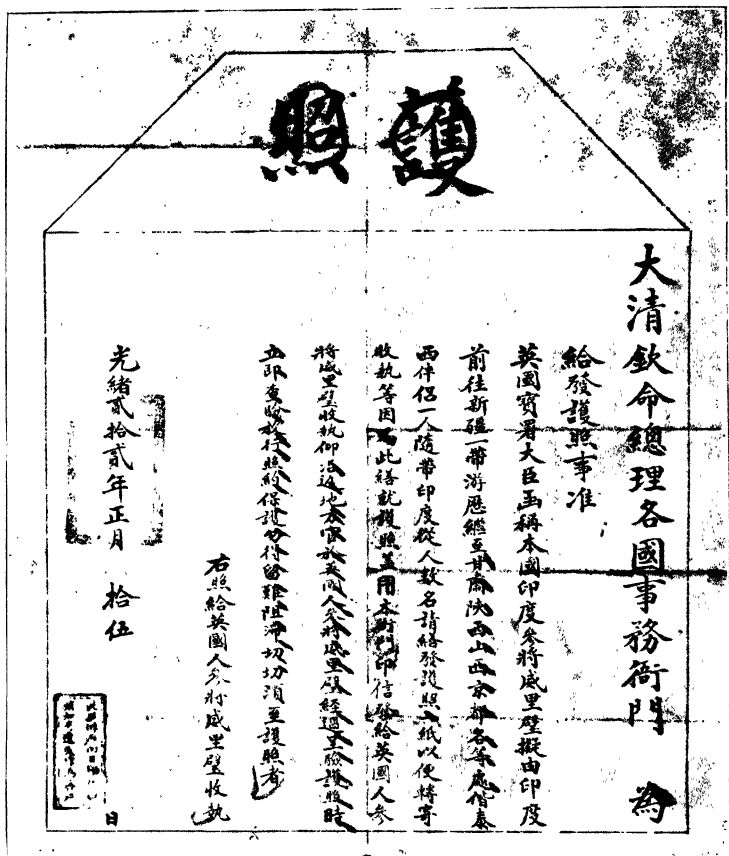 護照
大清欽命總理各國事務衙門 為
給發護照事准
英國寶署大臣函稱本國印度參將威里璧擬由印度
前往新疆一帶游歷繼至甘肅陝西山西京都各等處偕泰
西伴侶一人隨帶印度從人數名請繕發護照一紙以便轉寄
收執等因為此繕就護照蓋用本衙門印信發給英國人參
將威里璧收執仰沿途地方官於英國人參將威里璧經過呈驗護照時
立即查驗放行照約保護勿得留難阻滯切切須至護照者
右照給英國人參將威里璧收執
光緒貳拾貳年正月 拾伍 日